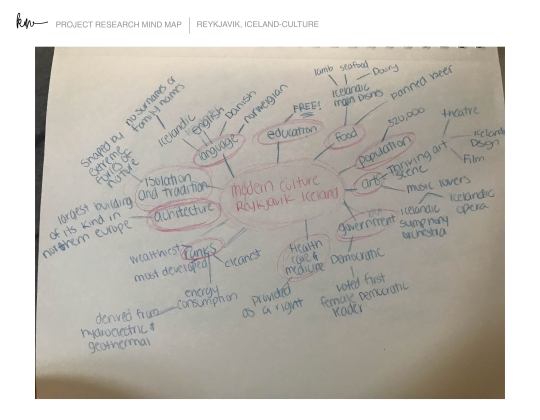 kw
PROJECT RESEARCH MIND MAP
REYKJAVIK, ICELAND-CULTURE
lamb
seafood
Dairy
Icelandic
main Dishes
banned beer
FREE!
no surnames or
family names
Icelandic
English
Danish
norwegian
language
education
Food
320,000
population
theatre
Film
thriving art
scene
arts
music lovers
Shaped by
extreme
forces of
nature
isolation
and tradition
modern culture
Reykjavik Iceland
largest building
of its kind in
northern europe
government
Icelandic
symphony
orchestra
Icelandic
opera
wealthiest
most developed
ranks
cleanest
Health
care &
medicine
Democratic
energy
consumption
provided
as a right
voted first
female Democratic
leader
derived from
hydroelectric &
geothermal